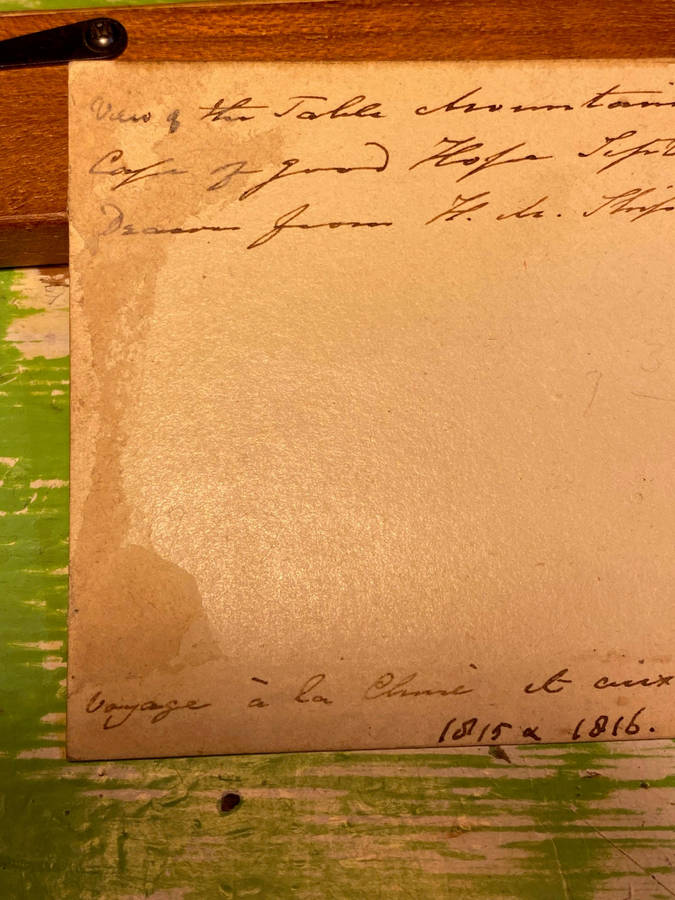 View of the Table Mountain
Cape of good Hope Sept
Drawn from H. M. Ship
Voyage à la Chine et aux
1815 & 1816.